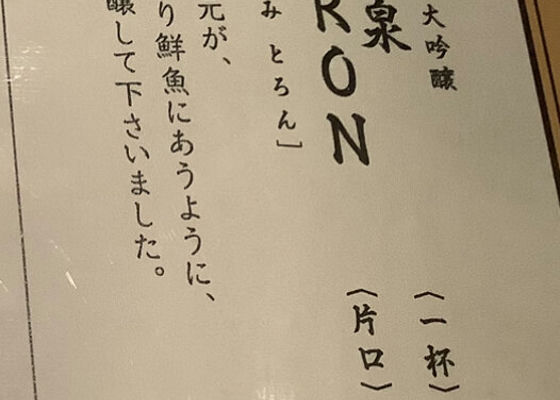 大吟醸
（一杯）
泉
RON
（片口）
み とろん」
元が、
り鮮魚にあうように、
醸して下さいました。